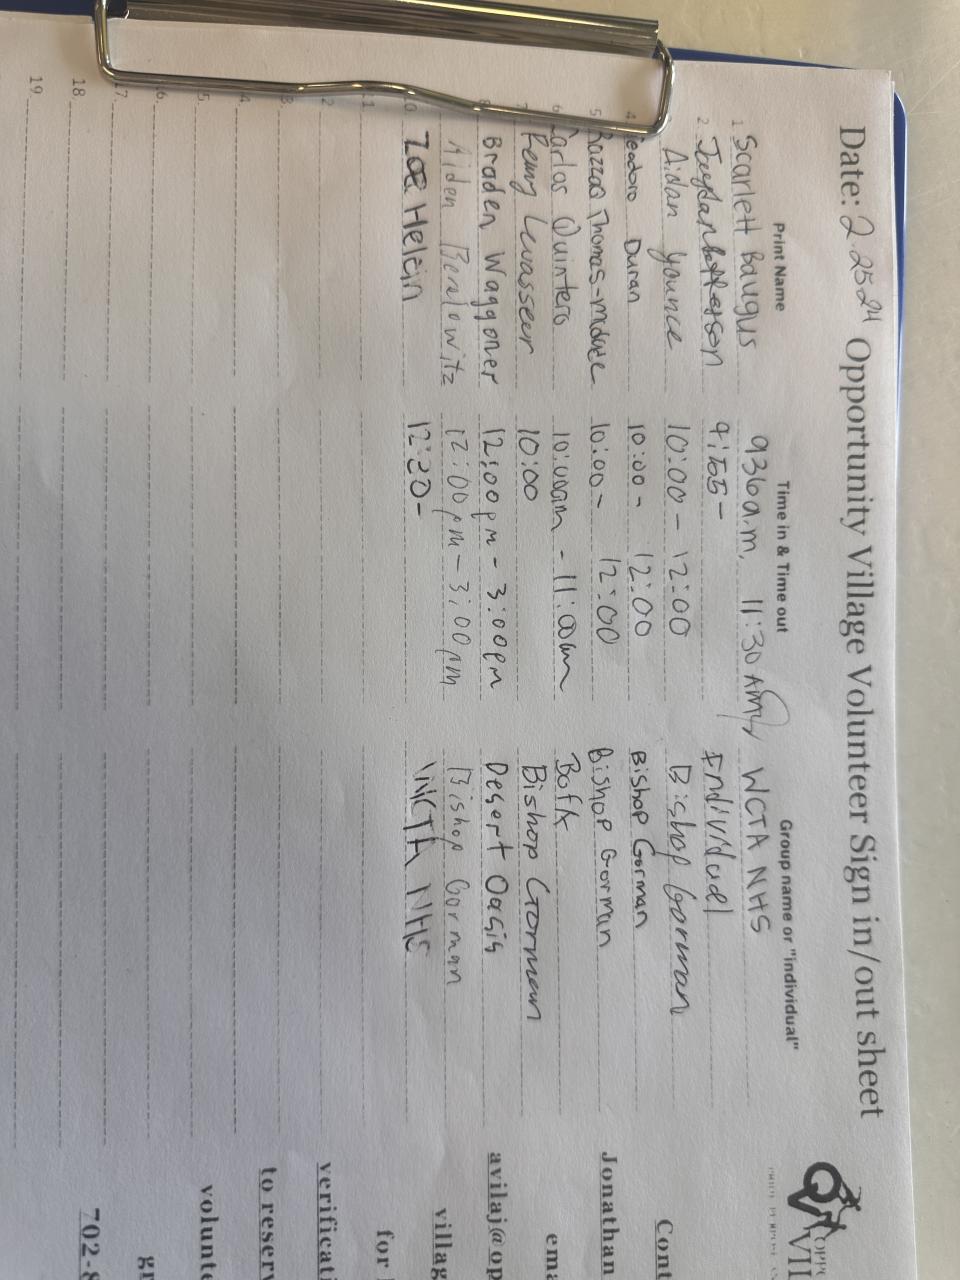 Date: 2.25.24 Opportunity Village Volunteer Sign in/out sheet
Print Name Time in & Time out Group name or "individual"
1 Scarlett Baugus 936a.m. 11:30 AM WCTA NHS
2 9:55- Individuel
Aidan Younce 10:00 - 12:00 Bishop Gorman
4 Teodoro Duran 10:00 - 12:00 Bishop Gorman
5 Razzaq Thomas- 10:00 - 12:00 Bishop Gorman
6 Carlos Quintero 10:00am - 11:00am BofA
7 Remy Levasseur 10:00 Bishop Gorman
8 Braden Waggoner 12:00pm - 3:00pm Desert Oasis
Aiden Beralowitz 12:00pm - 3:00pm Bishop Gorman
0 Zoe Helein 12:20- WCTA NHS
11
2
3.
4.
5.
6.
17.
18.
19.
OPPO
VIL
Cont
Jonathan
ema
avilaj@op
villag
for
verificati
to reserv
volunte
gr
702-8